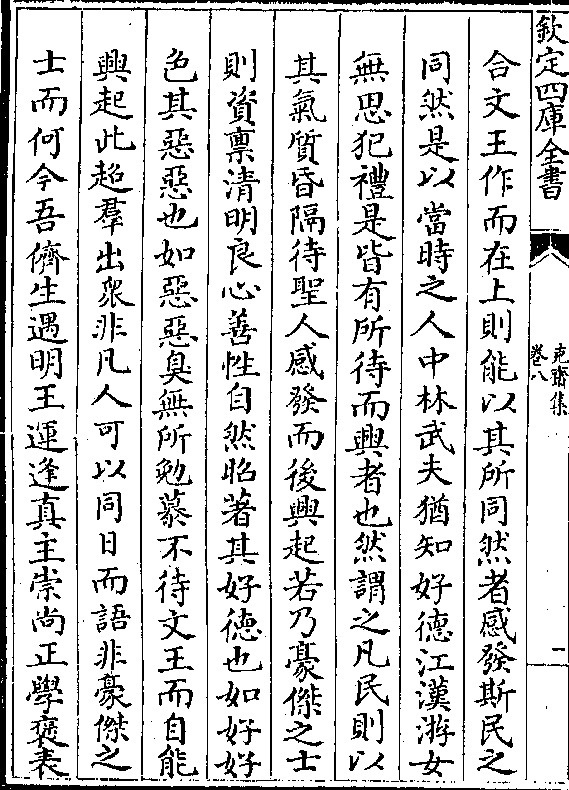 欽定四庫全書
克齋集
卷八
一
合文王作而在上則能以其所同然者感發斯民之
同然是以當時之人中林武夫猶知好德江漢游女
無思犯禮是皆有所待而興者也然謂之凡民則以
其氣質昏隔待聖人感發而後興起若乃豪傑之士
則資禀清明良心善性自然昭著其好德也如好好
色其惡惡也如惡惡臭無所勉慕不待文王而自能
興起此超羣出衆非凡人可以同日而語非豪傑之
士而何今吾儕生遇明王運逢真主崇尚正學褒表